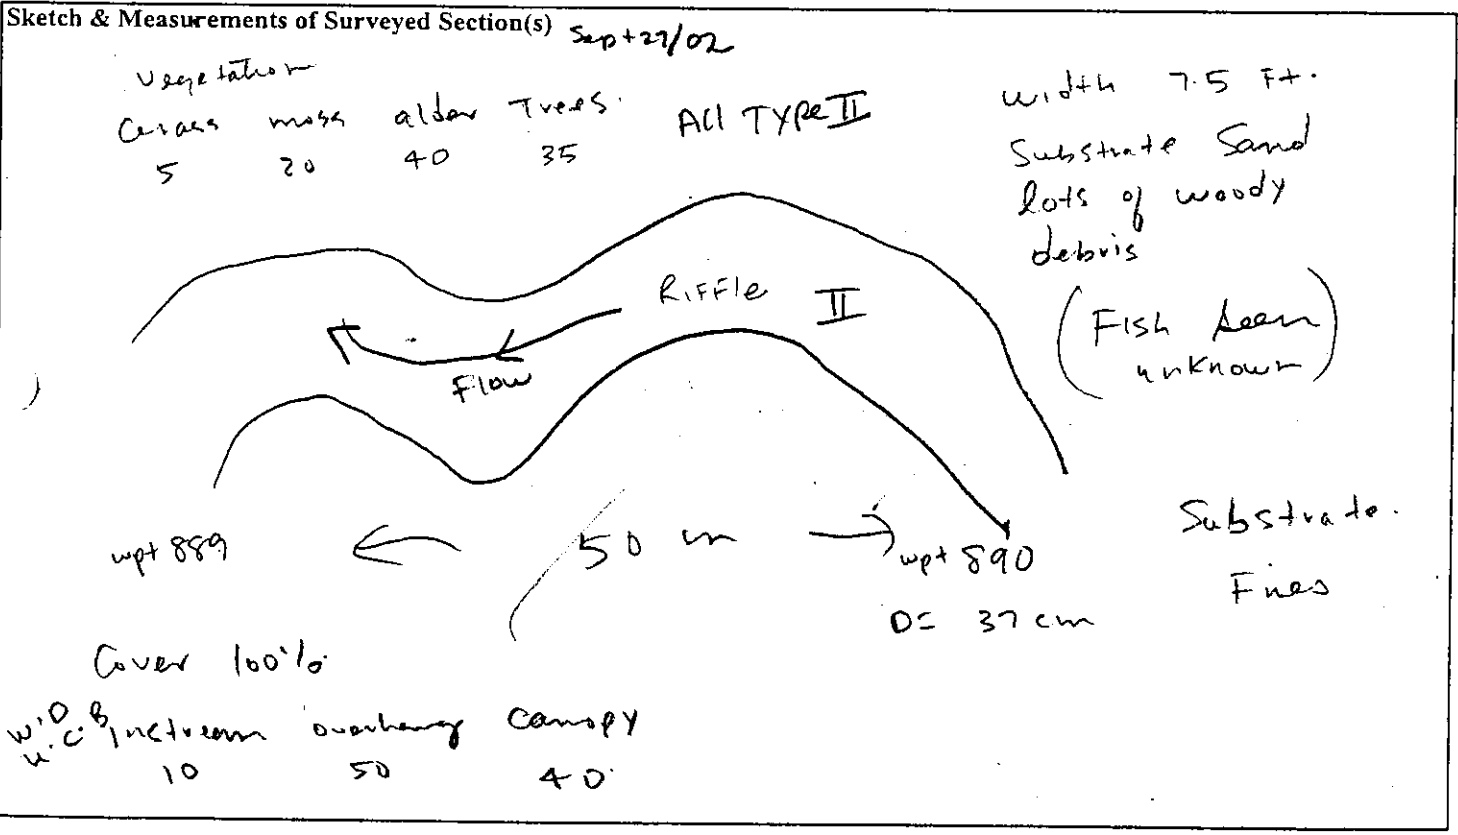 Sketch & Measurements of Surveyed Section(s) Sept 27/02
Vegetation
Grass moss alder Trees.
5 20 40 35
All Type II
width 7.5 Ft.
Substrate Sand
lots of woody
debris
(Fish seen
unknown)
Riffle II
Flow
wpt 889
50 m
wpt 890
D= 37 cm
Substrate.
Fines
Cover 100%
W.D
U.C.B
Instream overhang canopy
10 50 40